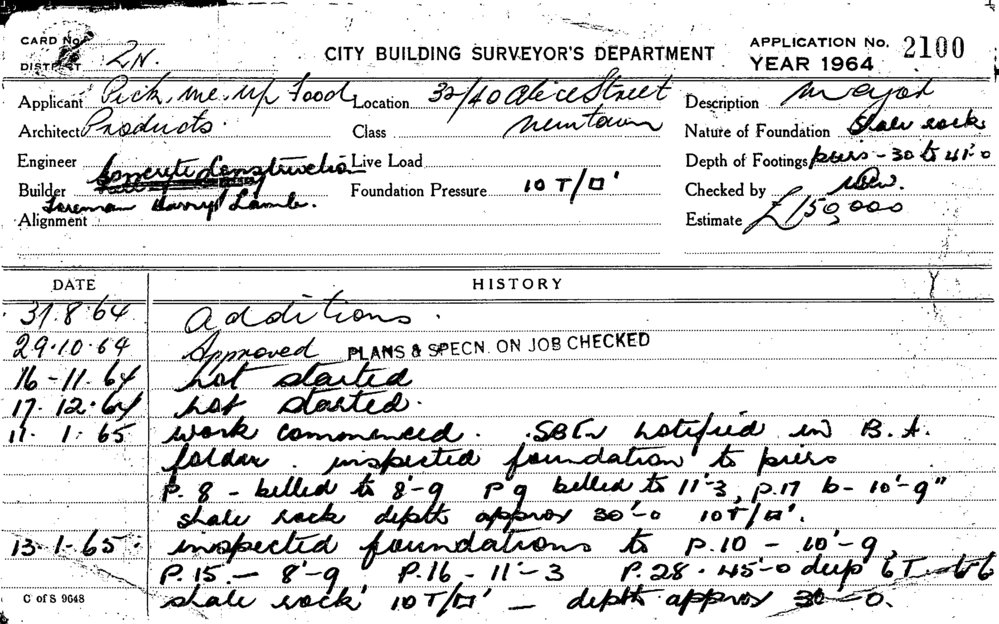 CARD No.
DISTRICT 2N.
CITY BUILDING SURVEYOR'S DEPARTMENT
APPLICATION No. 2100
YEAR 1964
Applicant Pick, me, up Food Location 32/40 Alice Street Description major
Architect Products. Class Newtown Nature of Foundation Shale rock
Engineer Live Load Depth of Footings piers - 30 to 41'-0
Builder Concrete Construction Foundation Pressure 10 T/□' Checked by
Foreman Harry Lamb.
Alignment Estimate £150,000
DATE HISTORY
31.8.64 Additions.
29.10.64 Approved PLANS & SPECN. ON JOB CHECKED
16-11-64 not started
17.12.64 not started.
11.1.65 work commenced. notified in B.A.
folder. inspected foundation to piers
P.8 - belled to 8'-9 P9 belled to 11'-3, P.17 b- 10'-9"
shale rock depth approx 30'-0 10T/□'.
13.1-65 inspected foundations to P.10 - 10'-9,
P.15.- 8'-9 P.16 - 11'-3 P.28. 45-0 deep 6T
shale rock 10T/□' - depth approx 30-0.
C of S 9648